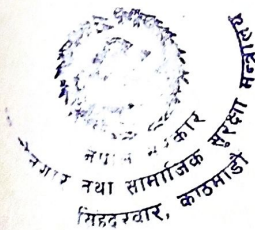 नेपाल सरकार
रोजगार तथा सामाजिक सुरक्षा मन्त्रालय
सिंहदरवार, काठमाडौं